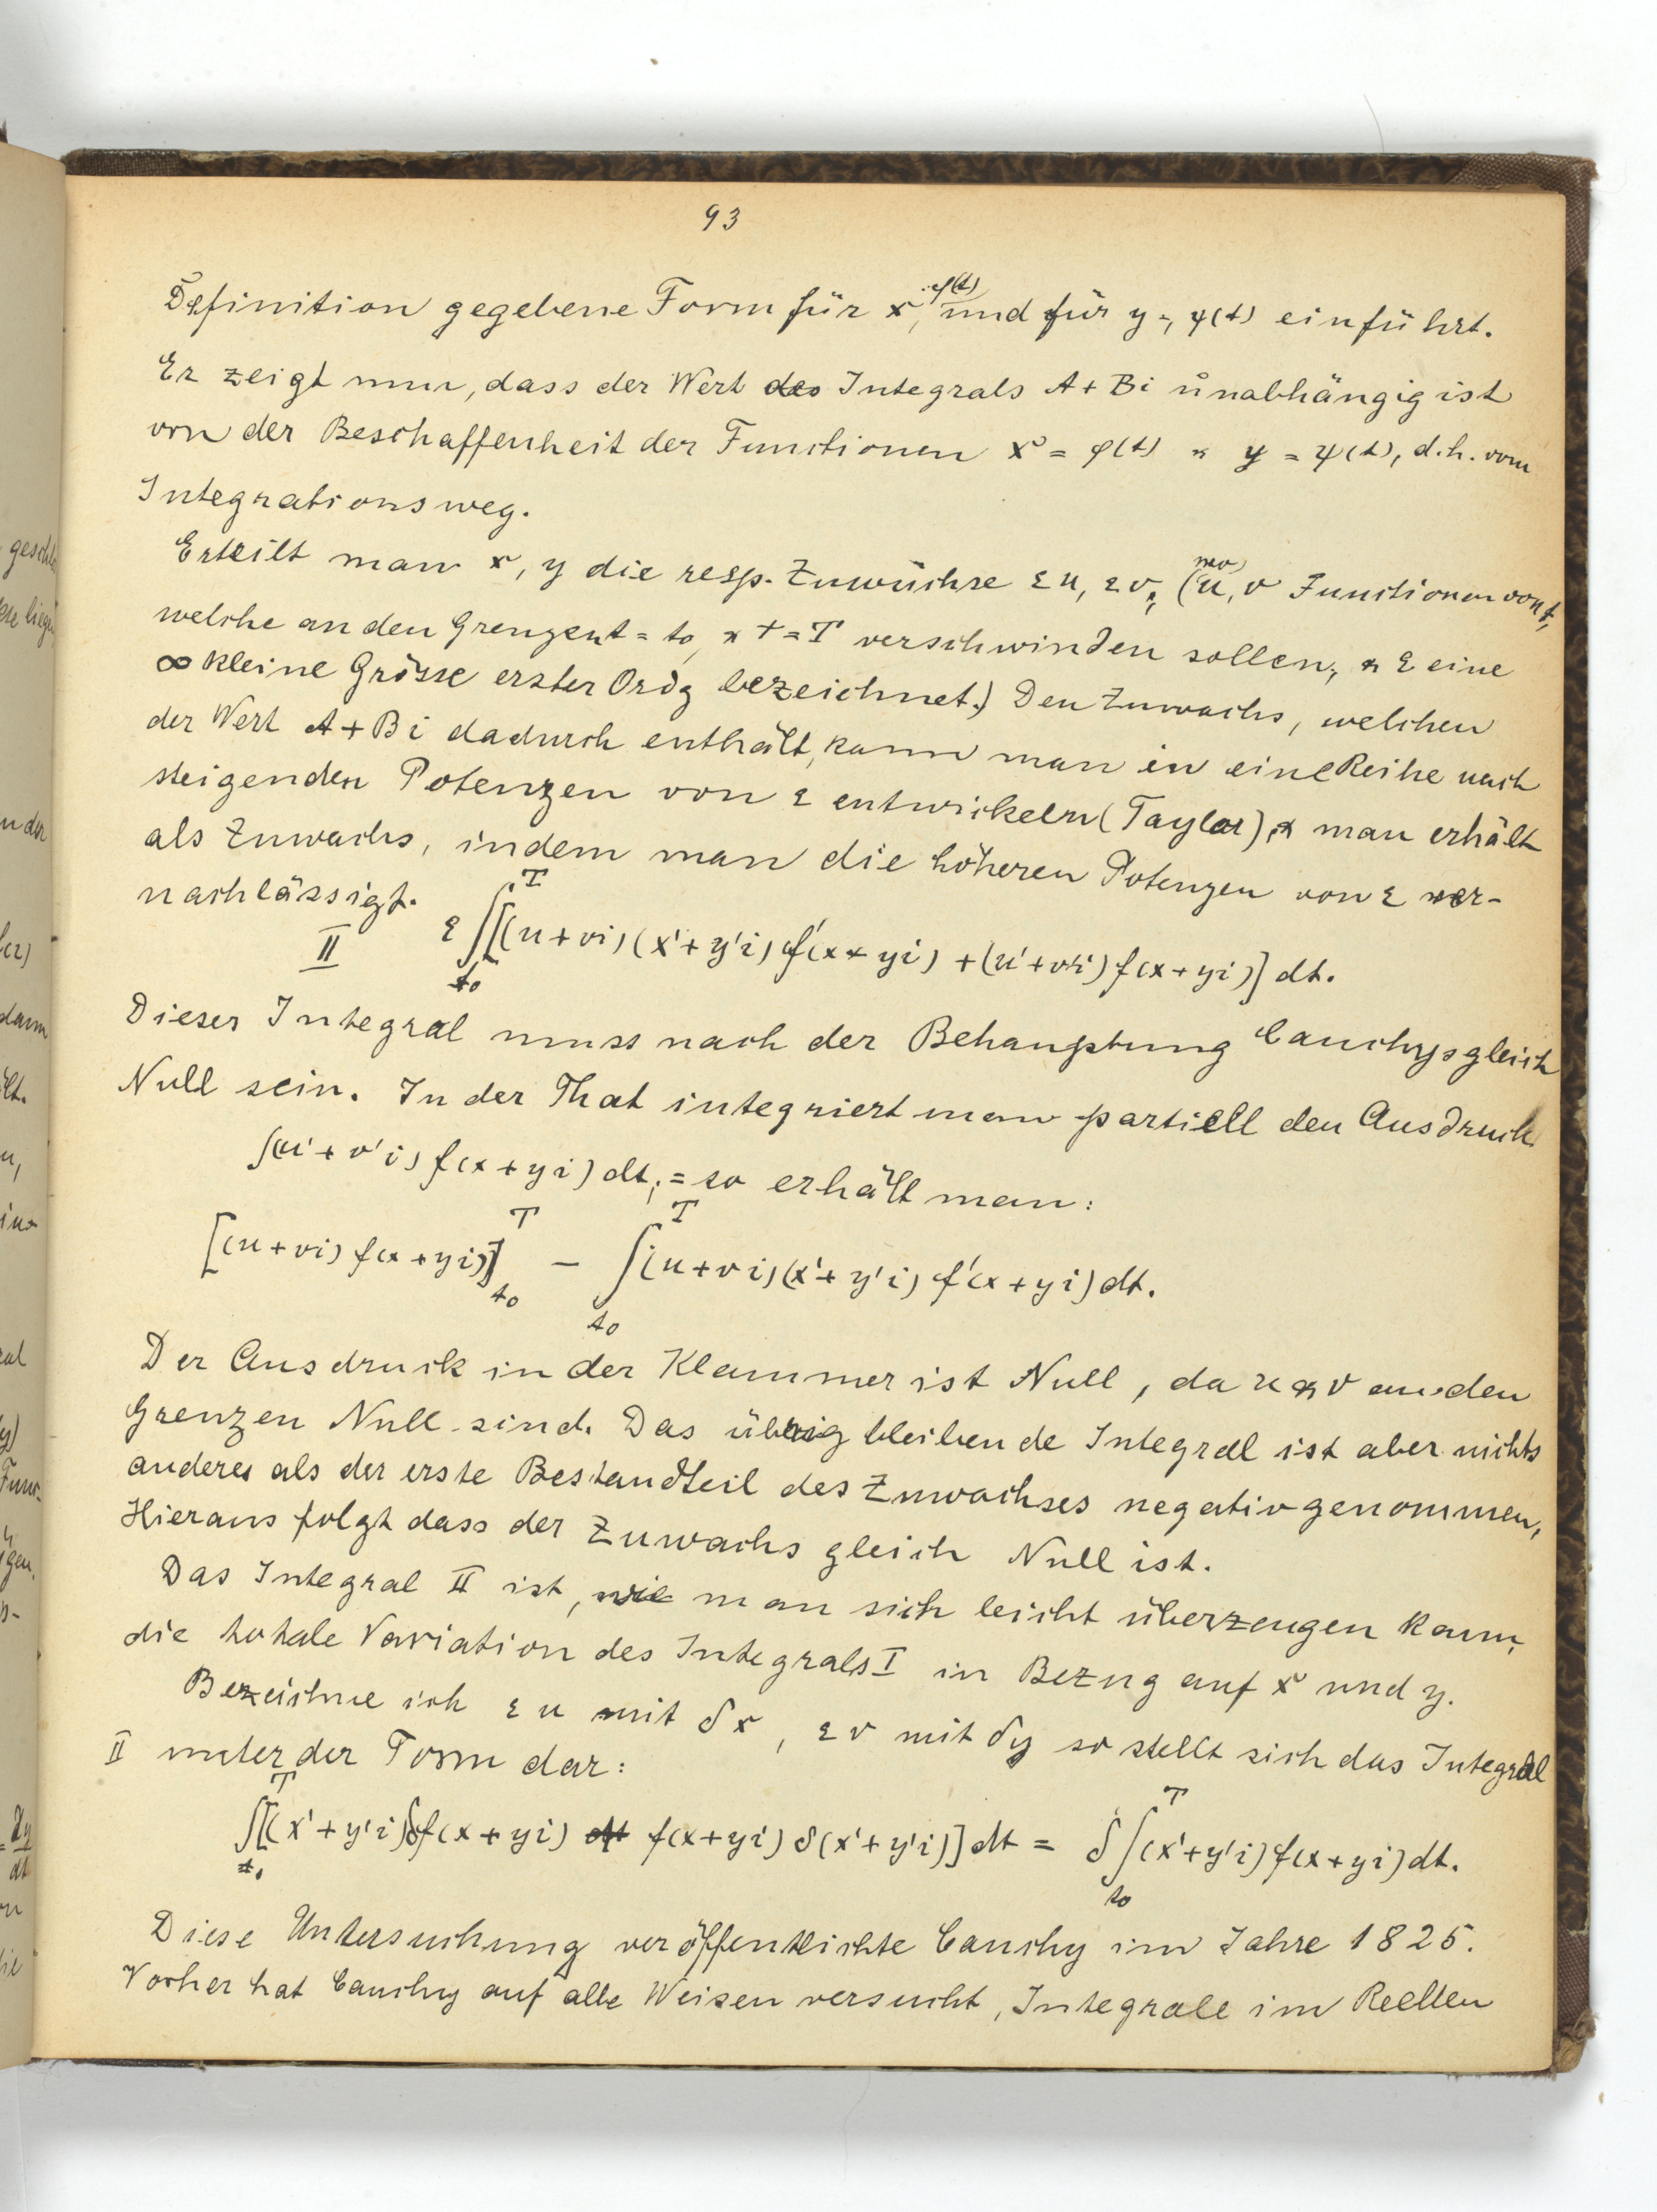 93
Definition gegebene Form für x = φ(t) und für y = ψ(t) einführt.
Er zeigt nun, dass der Wert des Integrals A + Bi unabhängig ist
von der Beschaffenheit der Functionen x = φ(t) & y = ψ(t), d.h. vom
Integrationsweg.
Erteilt man x, y die resp. Zuwüchse εu, εv, (wo u, v Functionen von t,
welche an den Grenzen t = t₀ & t = T verschwinden sollen, & ε eine
∞ kleine Grösse erster Ordg bezeichnet.) Den Zuwachs, welchen
der Wert A + Bi dadurch enthält, kann man in eine Reihe nach
steigenden Potenzen von ε entwickeln (Taylor), & man erhält
als Zuwachs, indem man die höheren Potenzen von ε ver-
nachlässigt.
II ε ∫[(u+vi)(x'+y'i) f'(x+yi) + (u'+v'i) f(x+yi)] dt.
T
t₀
Dieser Integral muss nach der Behauptung Cauchys gleich
Null sein. In der That integriert man partiell den Ausdruck
∫(u'+v'i) f(x+yi) dt, = so erhält man:
[(u+vi) f(x+yi)] T t₀ − ∫ T t₀ (u+vi)(x'+y'i) f'(x+yi) dt.
Der Ausdruck in der Klammer ist Null, da u & v an den
Grenzen Null sind. Das übrig bleibende Integral ist aber nichts
anderes als der erste Bestandteil des Zuwachses negativ genommen,
Hieraus folgt dass der Zuwachs gleich Null ist.
Das Integral II ist, wie man sich leicht überzeugen kann,
die totale Variation des Integrals I in Bezug auf x und y.
Bezeichne ich εu mit δx, εv mit δy so stellt sich das Integral
II unter der Form dar:
∫ T t₀ [(x'+y'i) δf(x+yi) f(x+yi) δ(x'+y'i)] dt = δ ∫ T t₀ (x'+y'i) f(x+yi) dt.
Diese Untersuchung veröffentlichte Cauchy im Jahre 1825.
Vorher hat Cauchy auf alle Weisen versucht, Integrale im Reellen